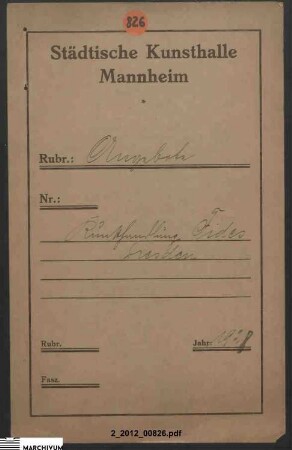 826
Städtische Kunsthalle
Mannheim
Rubr.: Angebote
Nr.:
Kunsthandlung Fides
Dresden
Rubr.
Jahr: 1928
Fasz.
2_2012_00826.pdf
MARCHIVUM